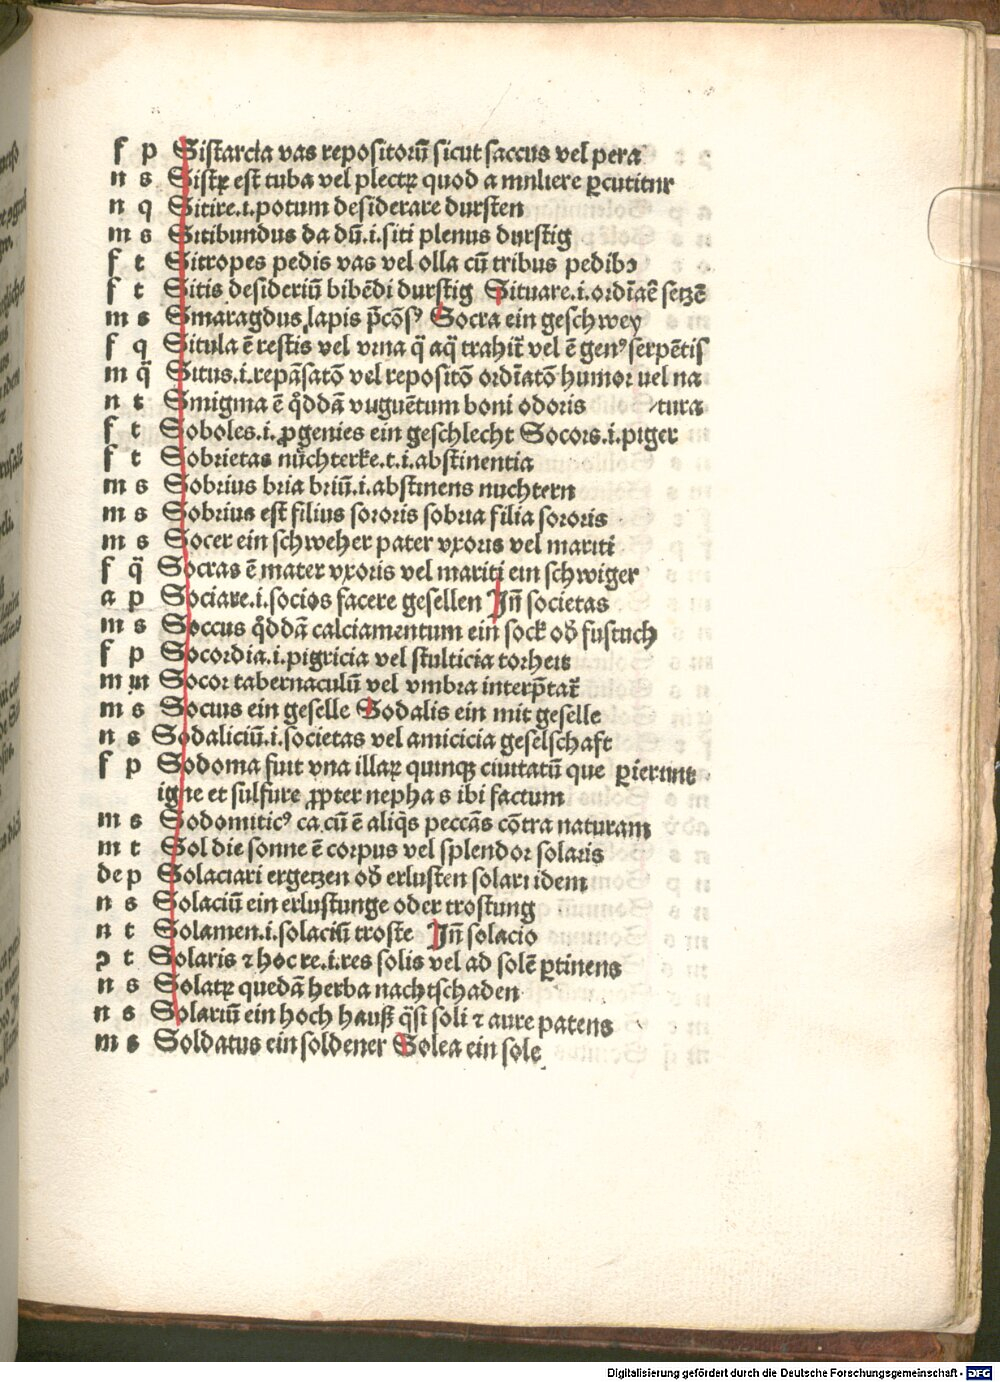 f p Sistarcia vas repositoriū sicut saccus vel pera
n s Sistꝝ est tuba vel plectꝝ quod a mnliere ꝑcutitur
n q Sitire.i.potum desiderare dursten
m s Sitibundus da dū.i.siti plenus durstig
f t Sitropes pedis vas vel olla cū tribus pedibꝰ
f t Sitis desideriū bibēdi durstig Situare.i.ordīaē setzē
m s Smaragdus lapis p̄cōsꝰ Socra ein geschwey
f q Situla ē restis vel vrna q̄ aq̄ trahit̄ vel ē genꝰ serpētis
m q̄ Situs.i.repāsatō vel repositō ordīatō humor uel na
n t Smigma ē q̊ddā vuguētum boni odoris /tura
f t Soboles.i.ꝓgenies ein geschlecht Socors.i.piger
f t Sobrietas nüchterke.t.i.abstinentia
m s Sobrius bria briū.i.abstinens nuchtern
m s Sobrius est filius sororis sobria filia sororis
m s Socer ein schweher pater vxoris vel mariti
f q̄ Socras ē mater vxoris vel mariti ein schwiger
a p Sociare.i.socios facere gesellen Jñ societas
m s Soccus q̊ddā calciamentum ein sock od̄ fustuch
f p Socordia.i.pigricia vel stulticia torheit
m m Socor tabernaculū vel vmbra interp̄tat̄
m s Socius ein geselle Sodalis ein mit geselle
n s Sodaliciū.i.societas vel amicicia geselschaft
f p Sodoma fuit vna illaꝝ quinqꝫ ciuitatū que ꝑierunt
igne et sulfure ꝓpter nepha s ibi factum
m s Sodomiticꝰ ca cū ē aliq̄s peccās cōtra naturam
m t Sol die sonne ē corpus vel splendor solaris
de p Solaciari ergetzen od̄ erlusten solari idem
n s Solaciū ein erlustunge oder trostung
n t Solamen.i.solaciū troste Jñ solacio
ꝯ t Solaris ⁊ hoc re.i.res solis vel ad solē ꝑtinens
n s Solatꝝ quedā herba nachtschaden
n s Solariū ein hoch hauß q̄si soli ⁊ aure patens
m s Soldatus ein soldener Solea ein sole
Digitalisierung gefördert durch die Deutsche Forschungsgemeinschaft - DFG